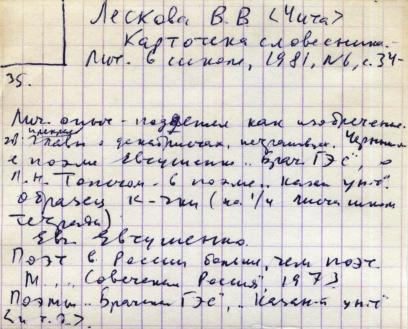 Лескова В. В <Чита>
Картотека словесника.-
Лит. в школе, 1981, №6, с. 34-
35.
Лич. опыт - как изобретение.
главы о декабристах, Чернышевском
в поэме Евтушенко „Братск. ГЭС", о
Л. Н. Толстом - в поэме „Казан. ун-т".
образец к-чки (на 1/4 листа школ
тетради)
Евг. Евтушенко.
Поэт в России больше, чем поэт.
М., „Советская Россия", 1973
Поэмы „Братская ГЭС", „Казан-й ун-т"
<и т. д.>